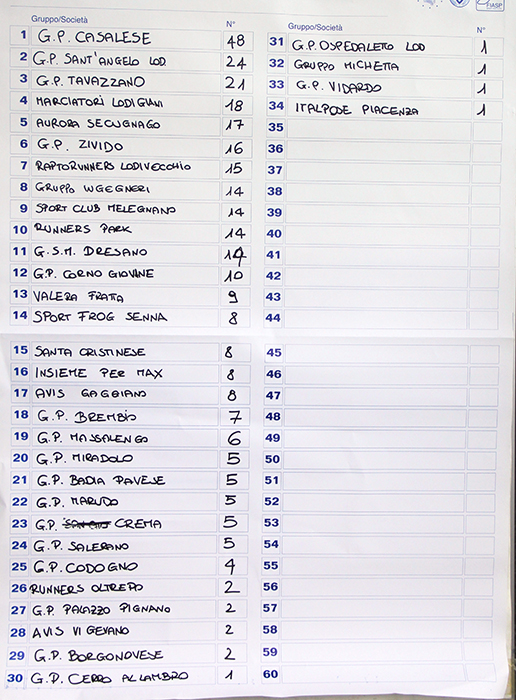 Gruppo/Società N°
1 G.P. CASALESE 48
2 G.P. SANT'ANGELO LOD. 24
3 G.P. TAVAZZANO 21
4 MARCIATORI LODIGIANI 18
5 AURORA SECUGNAGO 17
6 G.P. ZIVIDO 16
7 RAPTORUNNERS LODIVECCHIO 15
8 GRUPPO WGEGNERI 14
9 SPORT CLUB MELEGNANO 14
10 RUNNERS PARK 14
11 G.S.M. DRESANO 14
12 G.P. CORNO GIOVINE 10
13 VALERA FRATTA 9
14 SPORT FROG SENNA 8
15 SANTA CRISTINESE 8
16 INSIEME PER MAX 8
17 AVIS GAGGIANO 8
18 G.P. BREMBIO 7
19 G.P. MASSALENGO 6
20 G.P. MIRADOLO 5
21 G.P. BADIA PAVESE 5
22 G.P. MARUDO 5
23 G.P. CREMA 5
24 G.P. SALERANO 5
25 G.P. CODOGNO 4
26 RUNNERS OLTREPO 2
27 G.P. PALAZZO PIGNANO 2
28 AVIS VIGEVANO 2
29 G.P. BORGONOVESE 2
30 G.P. CERRO AL LAMBRO 1
FIASP
Gruppo/Società N°
31 G.P. OSPEDALETTO LOD 1
32 GRUPPO MICHETTA 1
33 G.P. VIDARDO 1
34 ITALPOSE PIACENZA 1
35
36
37
38
39
40
41
42
43
44
45
46
47
48
49
50
51
52
53
54
55
56
57
58
59
60